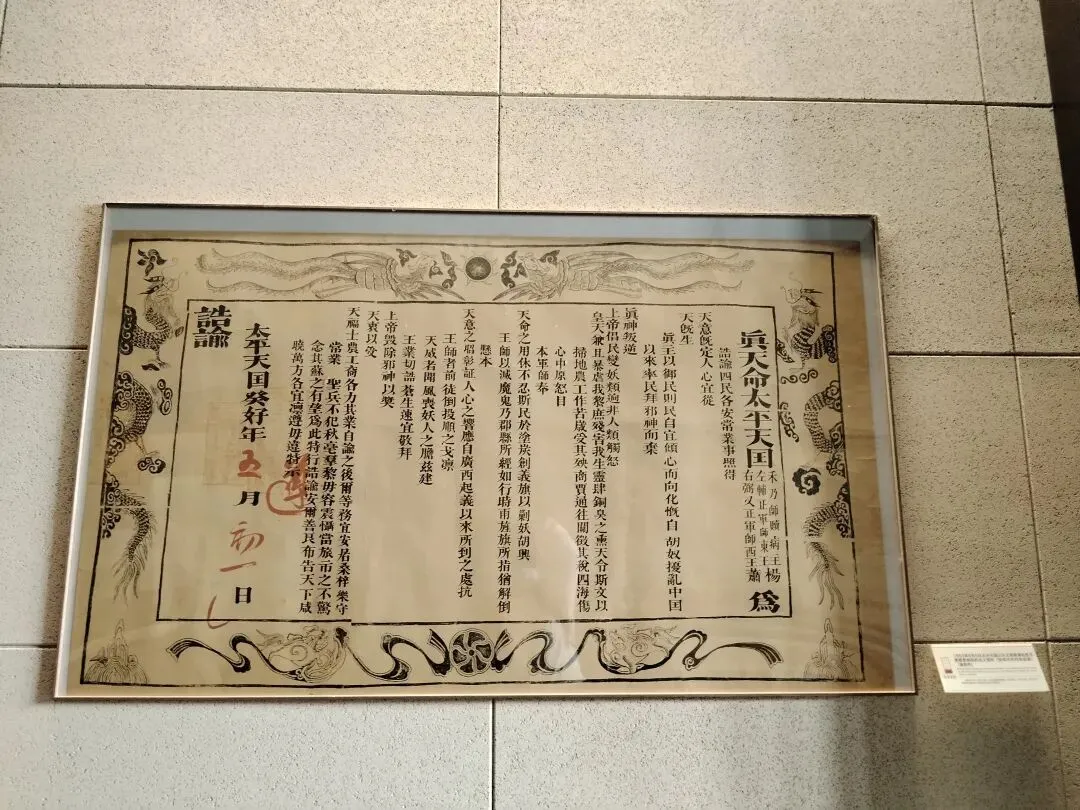 眞天命太平天囯
禾乃師贖病主
左輔正軍師東王楊
右弼又正軍師西王蕭
爲
誥諭四民各安常業事照得
天意旣定人心宜從
天旣生
眞主以御民則民自宜傾心而向化慨自 胡奴擾亂中囯
以來率民拜邪神而棄
眞神叛逆
上帝倡民變妖類逈非人類觸怒
皇天兼且暴虐我黎庶殘害我生靈肆銅臭之熏天令斯文以
掃地農工作苦歲受其殃商賈通往關徵其稅四海傷
心中原怒目
本軍師奉
天命之用休不忍斯民於塗炭創義旗以剿妖胡興
王師以滅魔鬼乃郡縣所經如行時雨旌旗所指猶解倒
懸本
天意之昭彰証人心之響應自廣西起義以來所到之處抗
王師者前徒倒投順之戈凛
天威者聞風喪妖人之膽茲建
王業切誥蒼生速宜敬拜
上帝毁除邪神以奬
天衷以受
天福士農工商各力其業自諭之後爾等務宜安居桑梓樂守
常業 聖兵不犯秋毫羣黎毋容震懾當旅市之不驚
念其蘇之有望爲此特行誥諭安爾善良布告天下咸
曉萬方各宜凛遵毋違特示
遵
太平天囯癸好年五月初一日
誥諭